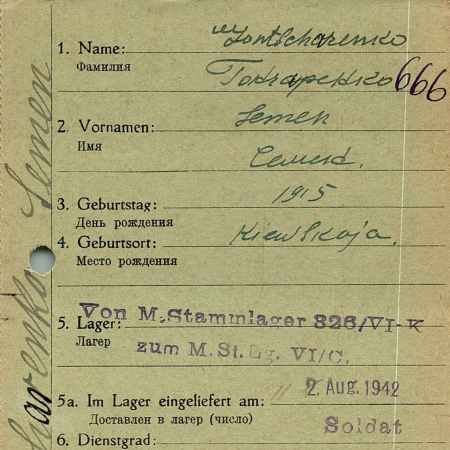 1. Name: Gontscharenko
Фамилия Гончаренко 666
2. Vornamen: Semen
Имя Семен.
3. Geburtstag: 1915
День рождения
4. Geburtsort: Kiewskaja.
Место рождения
5. Lager: Von M.Stammlager 326/VI-K
Лагер zum M. St. Lg. VI/C.
5a. Im Lager eingeliefert am: 2. Aug. 1942
Доставлен в лагер (число)
6. Dienstgrad: Soldat
arenko Semen